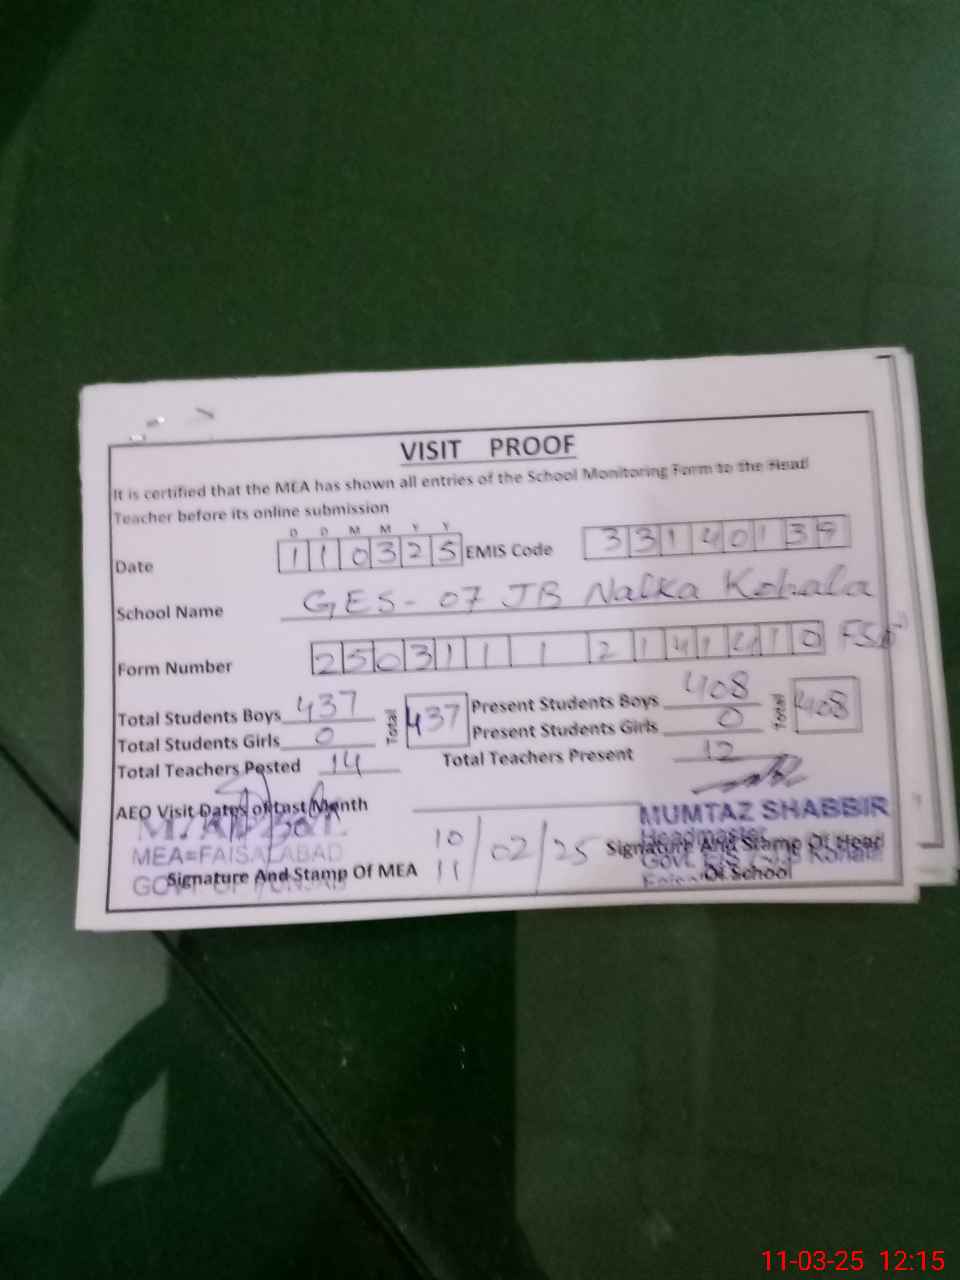 VISIT PROOF
It is certified that the MEA has shown all entries of the School Monitoring Form to the Head
Teacher before its online submission
D D M M Y Y
Date 110325 EMIS Code 33140139
School Name GES- 07 JB Nalka Kohala
Form Number 25031112141410 FSD
Total Students Boys 437 Total 437 Present Students Boys 408 Total 408
Total Students Girls 0 Present Students Girls 0
Total Teachers Posted 14 Total Teachers Present 12
AEO Visit Dates of Last Month
10
11 /02/25
MEA=FAISALABAD
Signature And Stamp Of MEA
MUMTAZ SHABBIR
Headmaster
Signature And Stamp Of Head
Of School
11-03-25 12:15